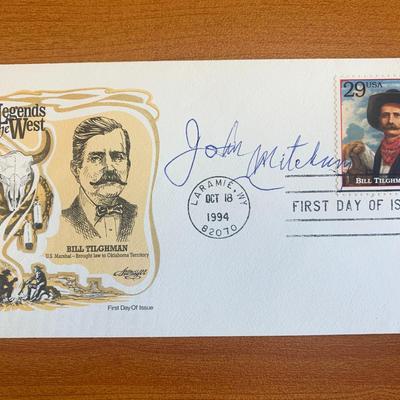 Legends
the West
John Mitchum
29 USA
BILL TILGHMAN
LARAMIE, WY
OCT 18
1994
82070
FIRST DAY OF IS
BILL TILGHMAN
U.S. Marshal - Brought law to Oklahoma Territory
Artmaster
First Day Of Issue